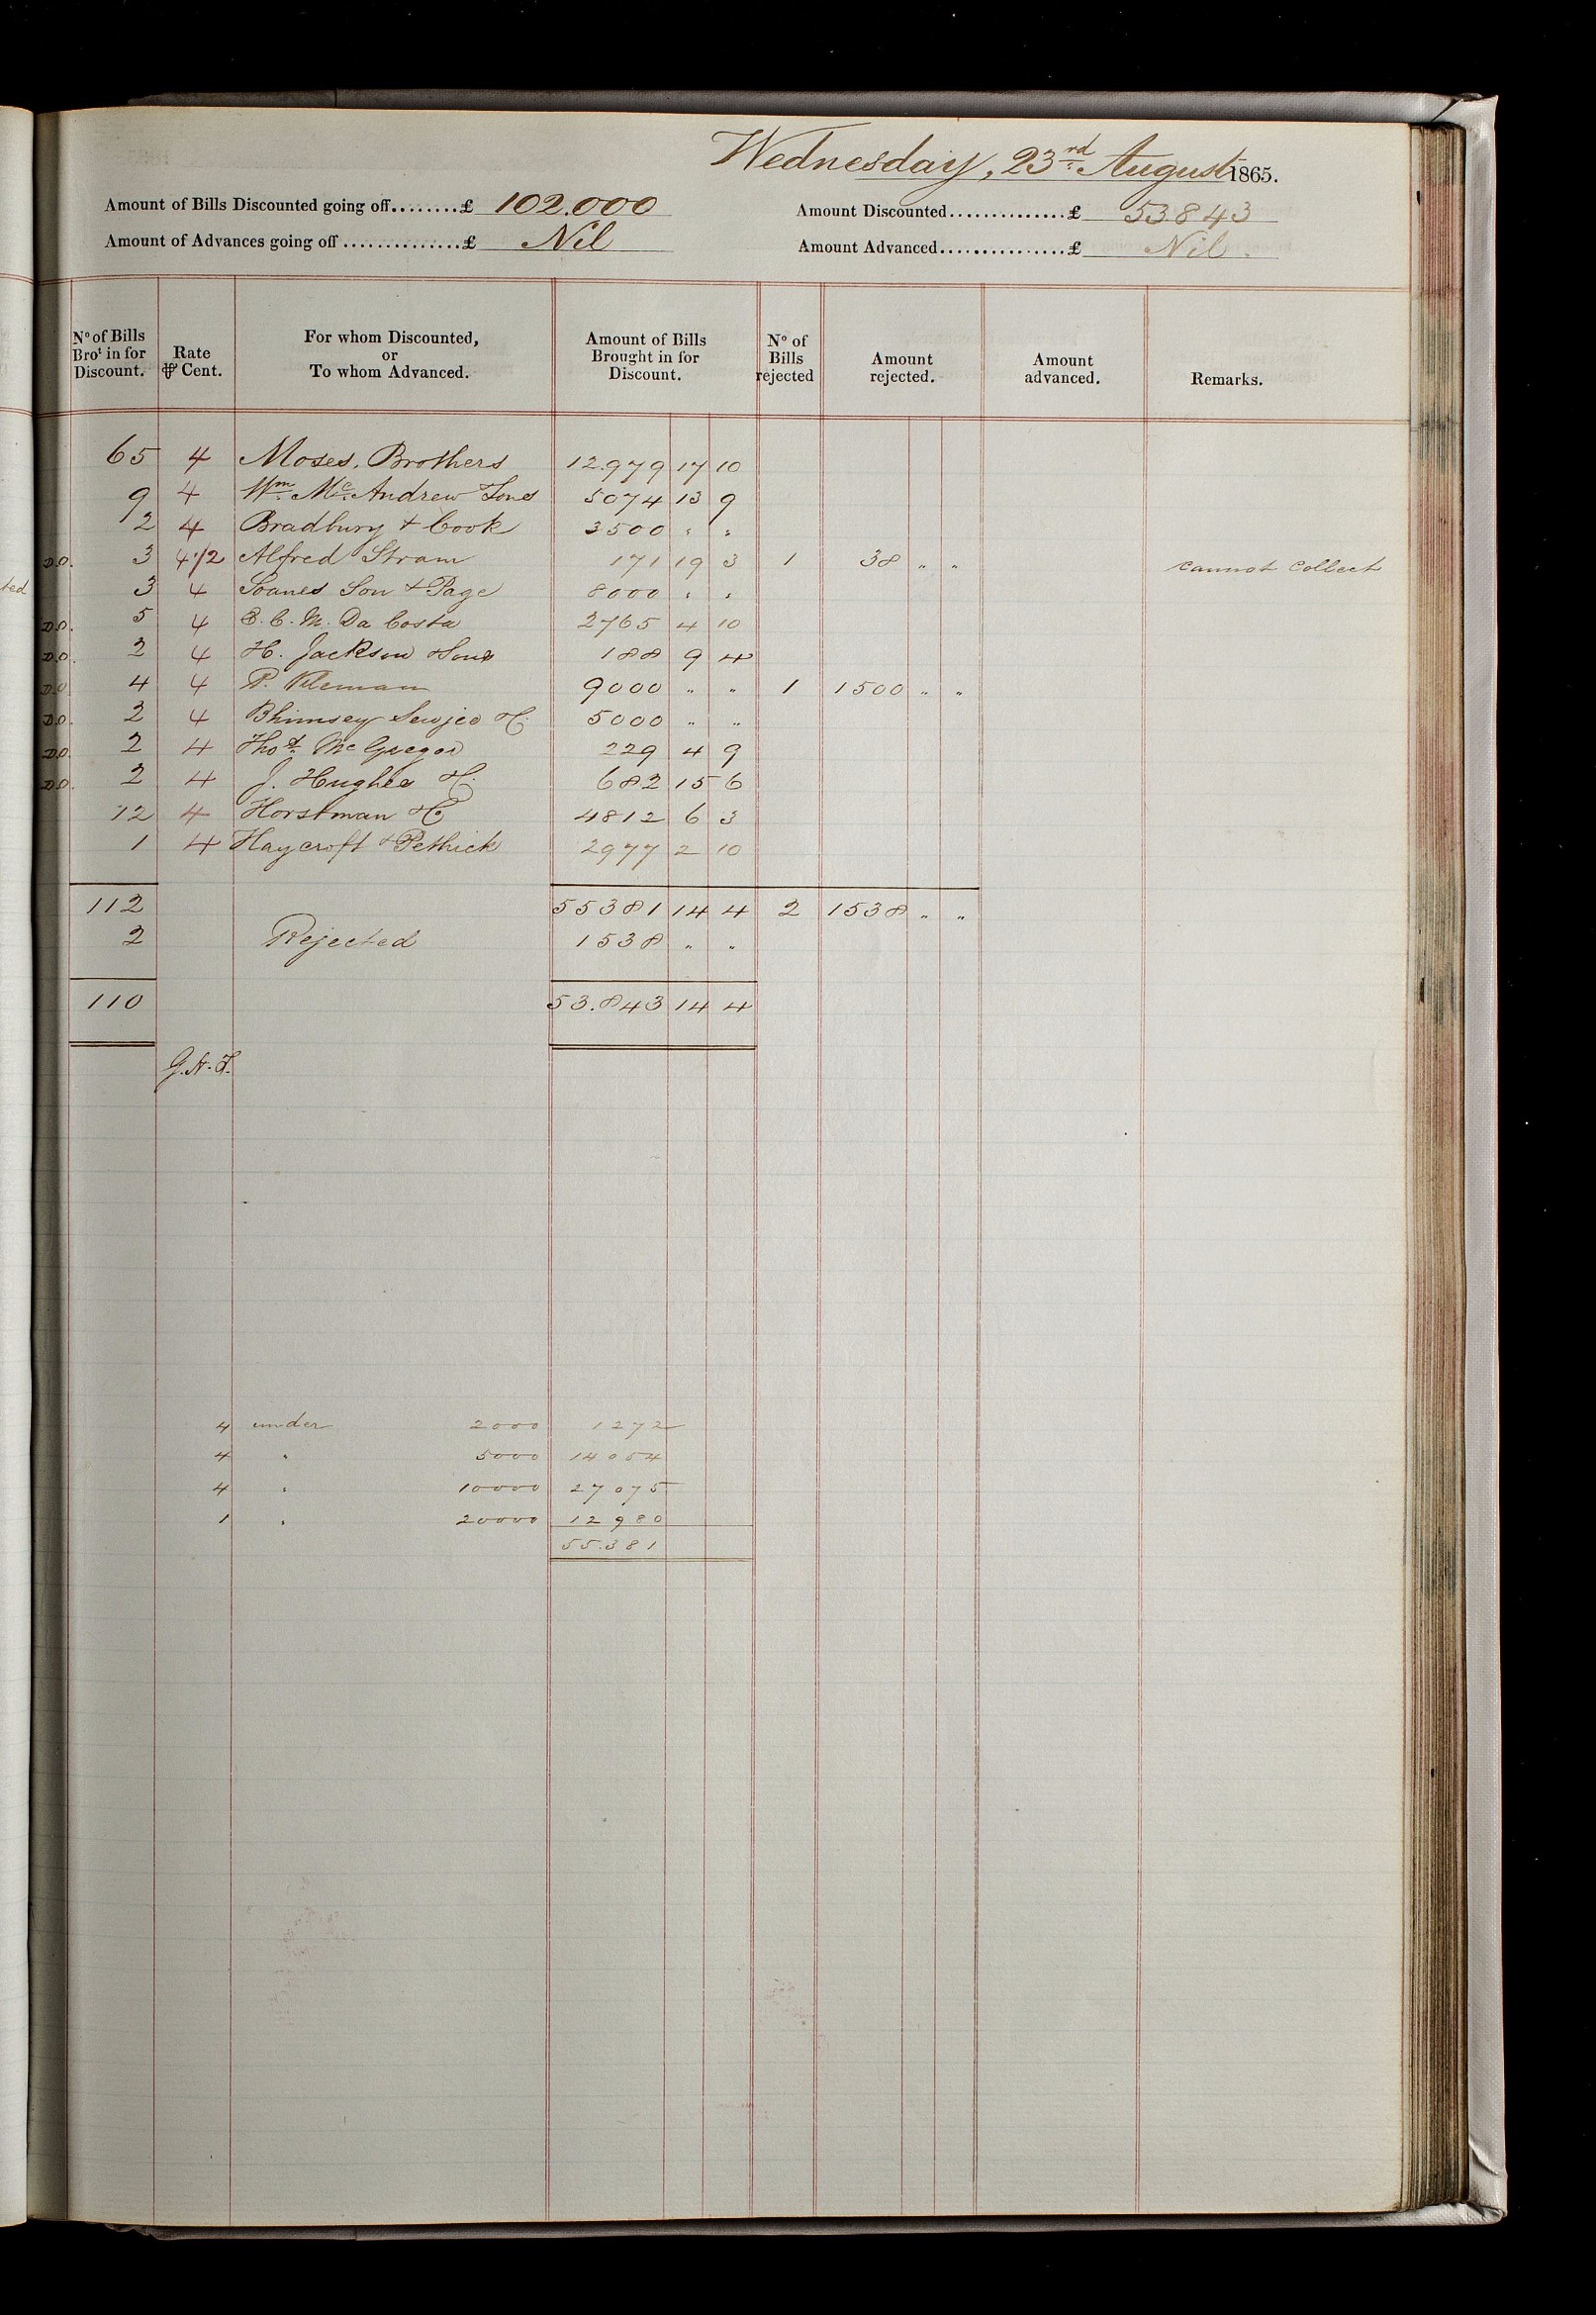 Wednesday, 23rd August 1865.
Amount of Bills Discounted going off........£ 102.000 Amount Discounted..............£ 53843
Amount of Advances going off..............£ Nil Amount Advanced...............£ Nil.
No of Bills Brot in for Discount. Rate ⅌ Cent. For whom Discounted, or To whom Advanced. Amount of Bills Brought in for Discount. No of Bills rejected Amount rejected. Amount advanced. Remarks.
65 4 Moses, Brothers 12.979 17 10
9 4 Wm. Mc.Andrew Sons 5074 13 9
2 4 Bradbury + Cook 3500 " "
D.O. 3 4 1/2 Alfred Stram 171 19 3 1 38 " " cannot collect
ted 3 4 Soanes Son + Page 8000 " "
D.O. 5 4 C. M. Da Costa 2765 4 10
D.O. 2 4 H. Jackson & Sons 188 9 4
D.O 4 4 P. 9000 " " 1 1500 " "
D.O. 2 4 Bhimsey 5000 " "
D.O. 2 4 Thos. Mc Gregor 229 4 9
D.O. 2 4 J. Hughes & C. 682 15 6
12 4 Horstman & C 4812 6 3
1 4 Haycroft + Pethick 2977 2 10
112 55381 14 4 2 1538 " "
2 Rejected 1538 " "
110 53.843 14 4
4 under 2000 1272
4 " 5000 14054
4 " 10000 27075
1 " 20000 12980
55.381